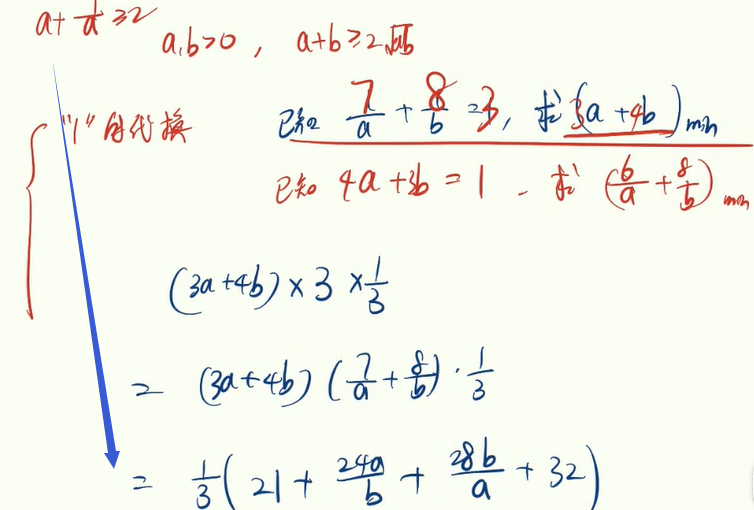 a+1/a≥2
a,b>0, a+b≥2√ab
"1"的代换
已知 7/a + 8/b =3, 求(3a+4b)min
已知 4a+3b=1, 求(6/a+8/b)min
(3a+4b)×3×1/3
= (3a+4b)(7/a+8/b)·1/3
= 1/3(21+24a/b+28b/a+32)